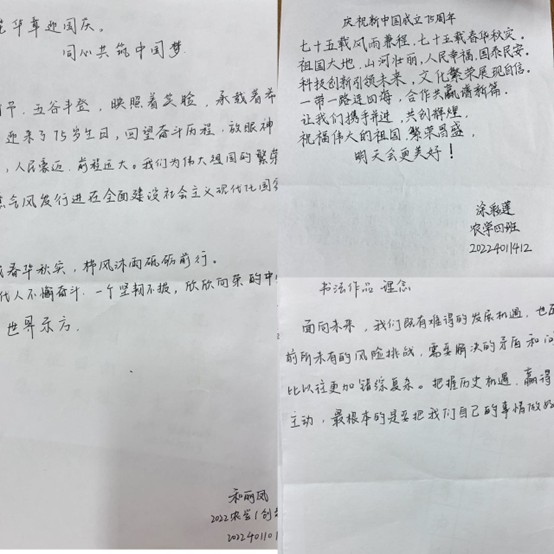 华章迎国庆。
同心共筑中国梦
五谷丰登，映照着笑脸，承载着希
迎来了75岁生日，回望奋斗历程，放眼神
，人民豪迈，前程远大。我们为伟大祖国的繁荣
气风发行进在全面建设社会主义现代化国
春华秋实，栉风沐雨砥砺前行。
代人不懈奋斗，一个坚韧不拔，欣欣向荣的中
世界东方.
和丽凤
2022农学1创
2022401101
庆祝新中国成立75周年
七十五载风雨兼程，七十五载春华秋实。
祖国大地，山河壮丽，人民幸福，国泰民安。
科技创新引领未来，文化繁荣展现自信。
一带一路连四海，合作共赢谱新篇。
让我们携手并进，共创辉煌，
祝福伟大的祖国，繁荣昌盛，
明天会更美好！
涂彩莲
农学四班
20224011412
书法作品 理念
面向未来，我们既有难得的发展机遇，也面
前所未有的风险挑战，需要解决的矛盾和问
比以往更加错综复杂。把握历史机遇，赢得
主动，最根本的是要把我们自己的事情做好